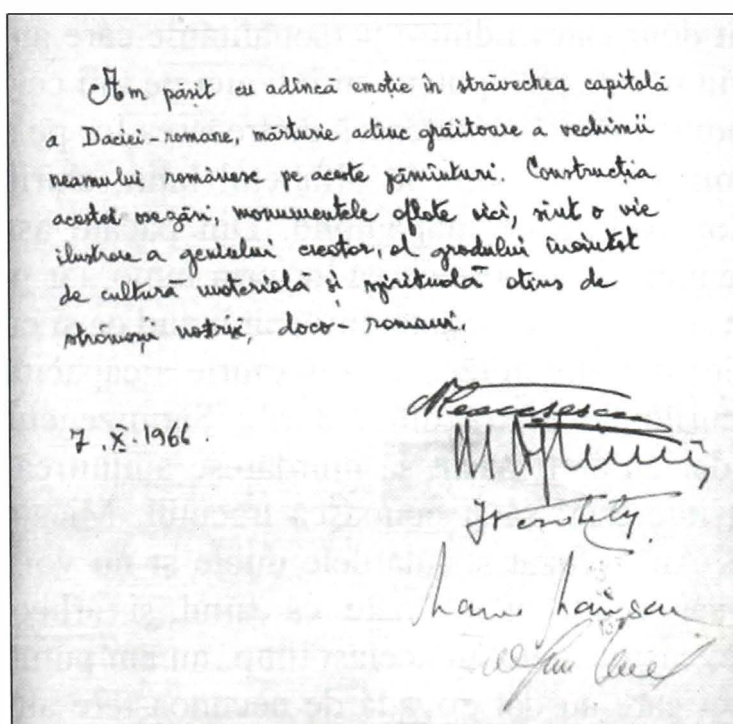 Am pășit cu adîncă emoție în străvechea capitală
a Daciei-romane, mărturie adînc grăitoare a vechimii
neamului românesc pe aceste pămînturi. Construcția
acestei așezări, monumentele aflate aici, sînt o vie
ilustrare a geniului creator, al gradului înaintat
de cultură materială și spirituală atins de
strămoșii noștri, daco-romani.
7.X.1966.